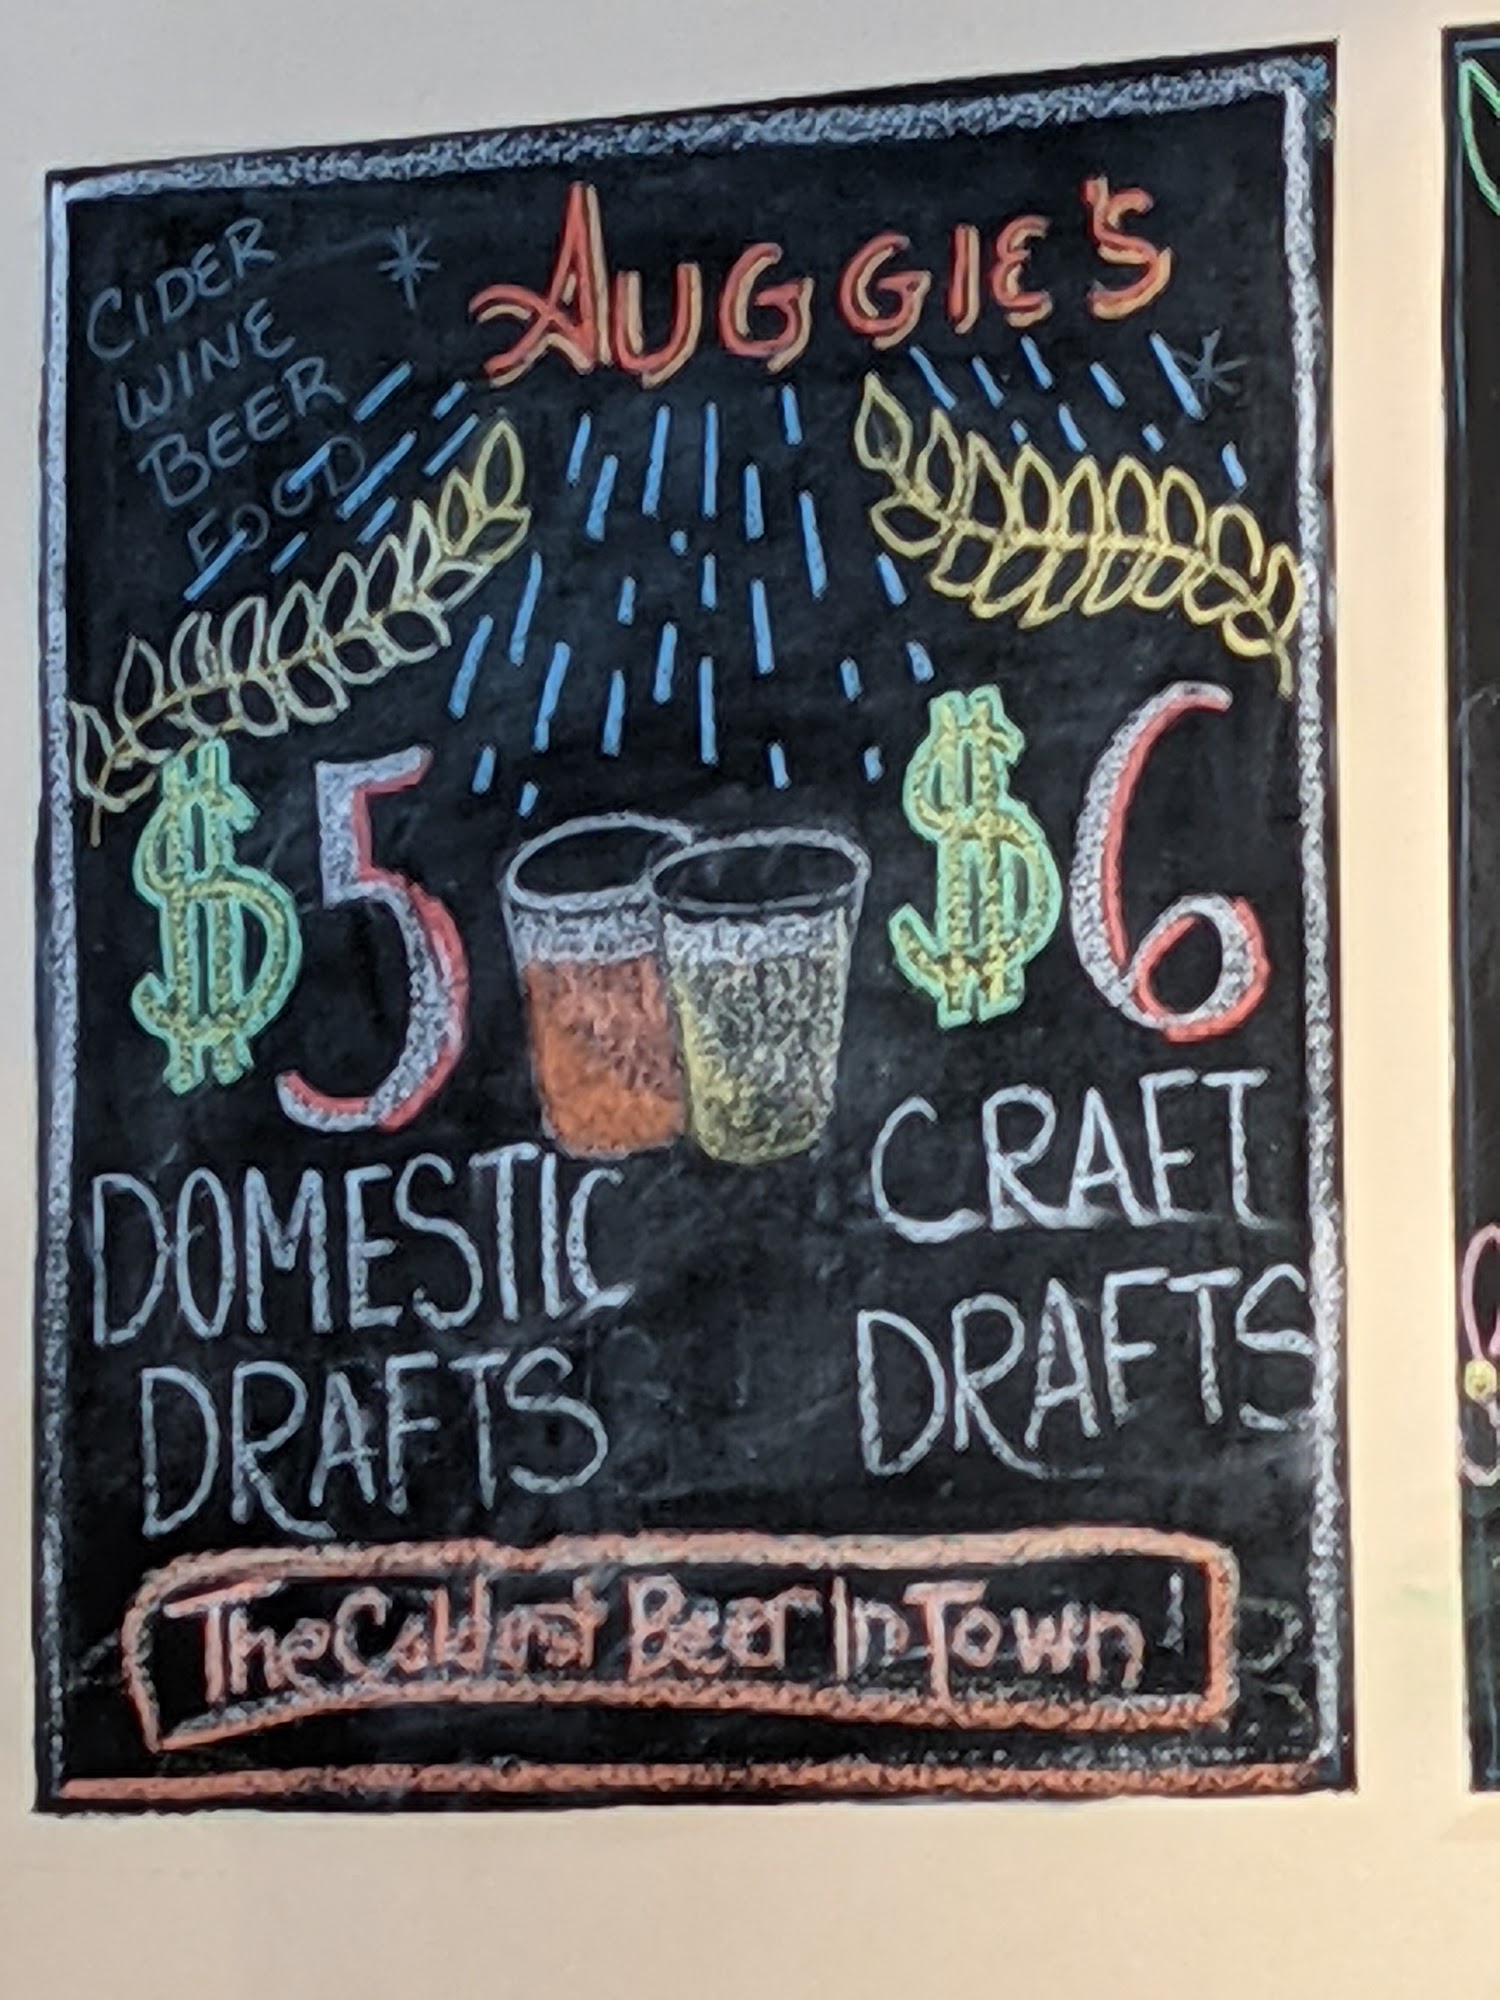 AUGGIE'S
CIDER
WINE
BEER
FOOD
$5
DOMESTIC
DRAFTS
$6
CRAFT
DRAFTS
The Coldest Beer In Town!